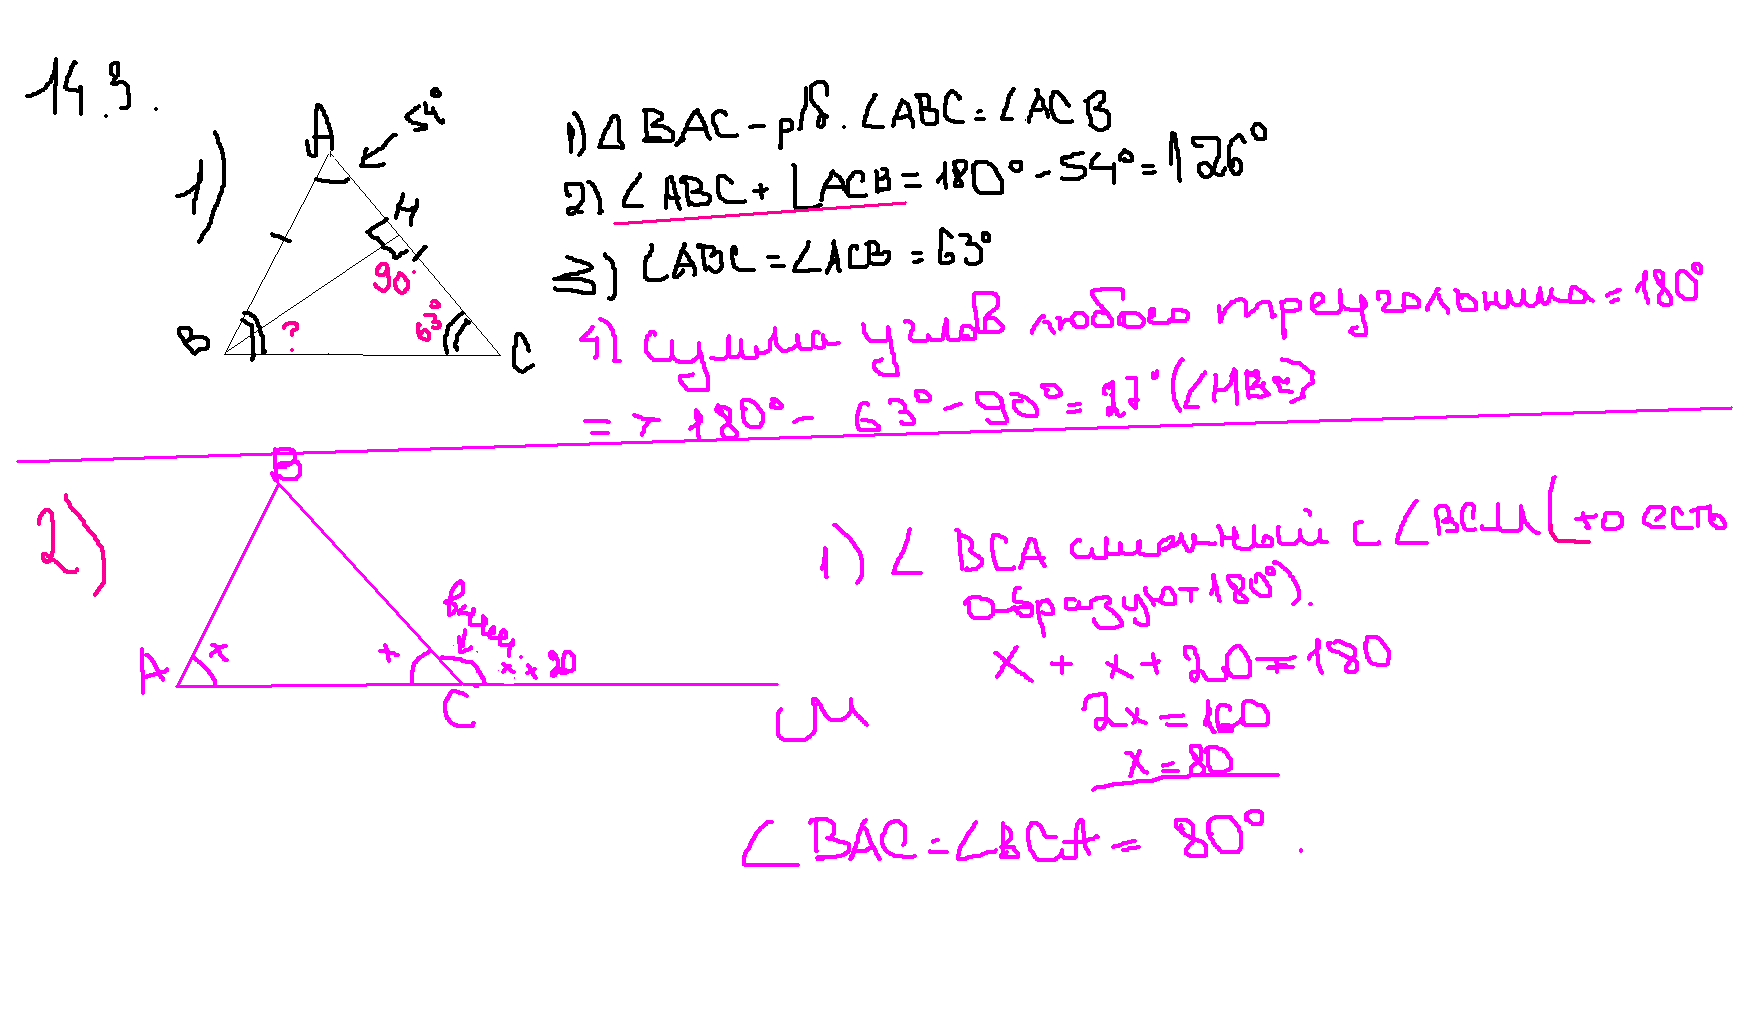 14.3.
1)
A
54°
H
90°
B
?
63°
C
1) Δ BAC - р/б. ∠ABC = ∠ACB
2) ∠ABC + ∠ACB = 180° - 54° = 126°
3) ∠ABC = ∠ACB = 63°
4) Сумма углов любого треугольника = 180°
=> 180° - 63° - 90° = 27° (∠HBC)
2)
B
A
x
x
внеш.
x + 20
C
M
1) ∠ BCA смежный с ∠BCM (то есть
образуют 180°).
x + x + 20 = 180
2x = 160
x = 80
∠BAC = ∠BCA = 80°.